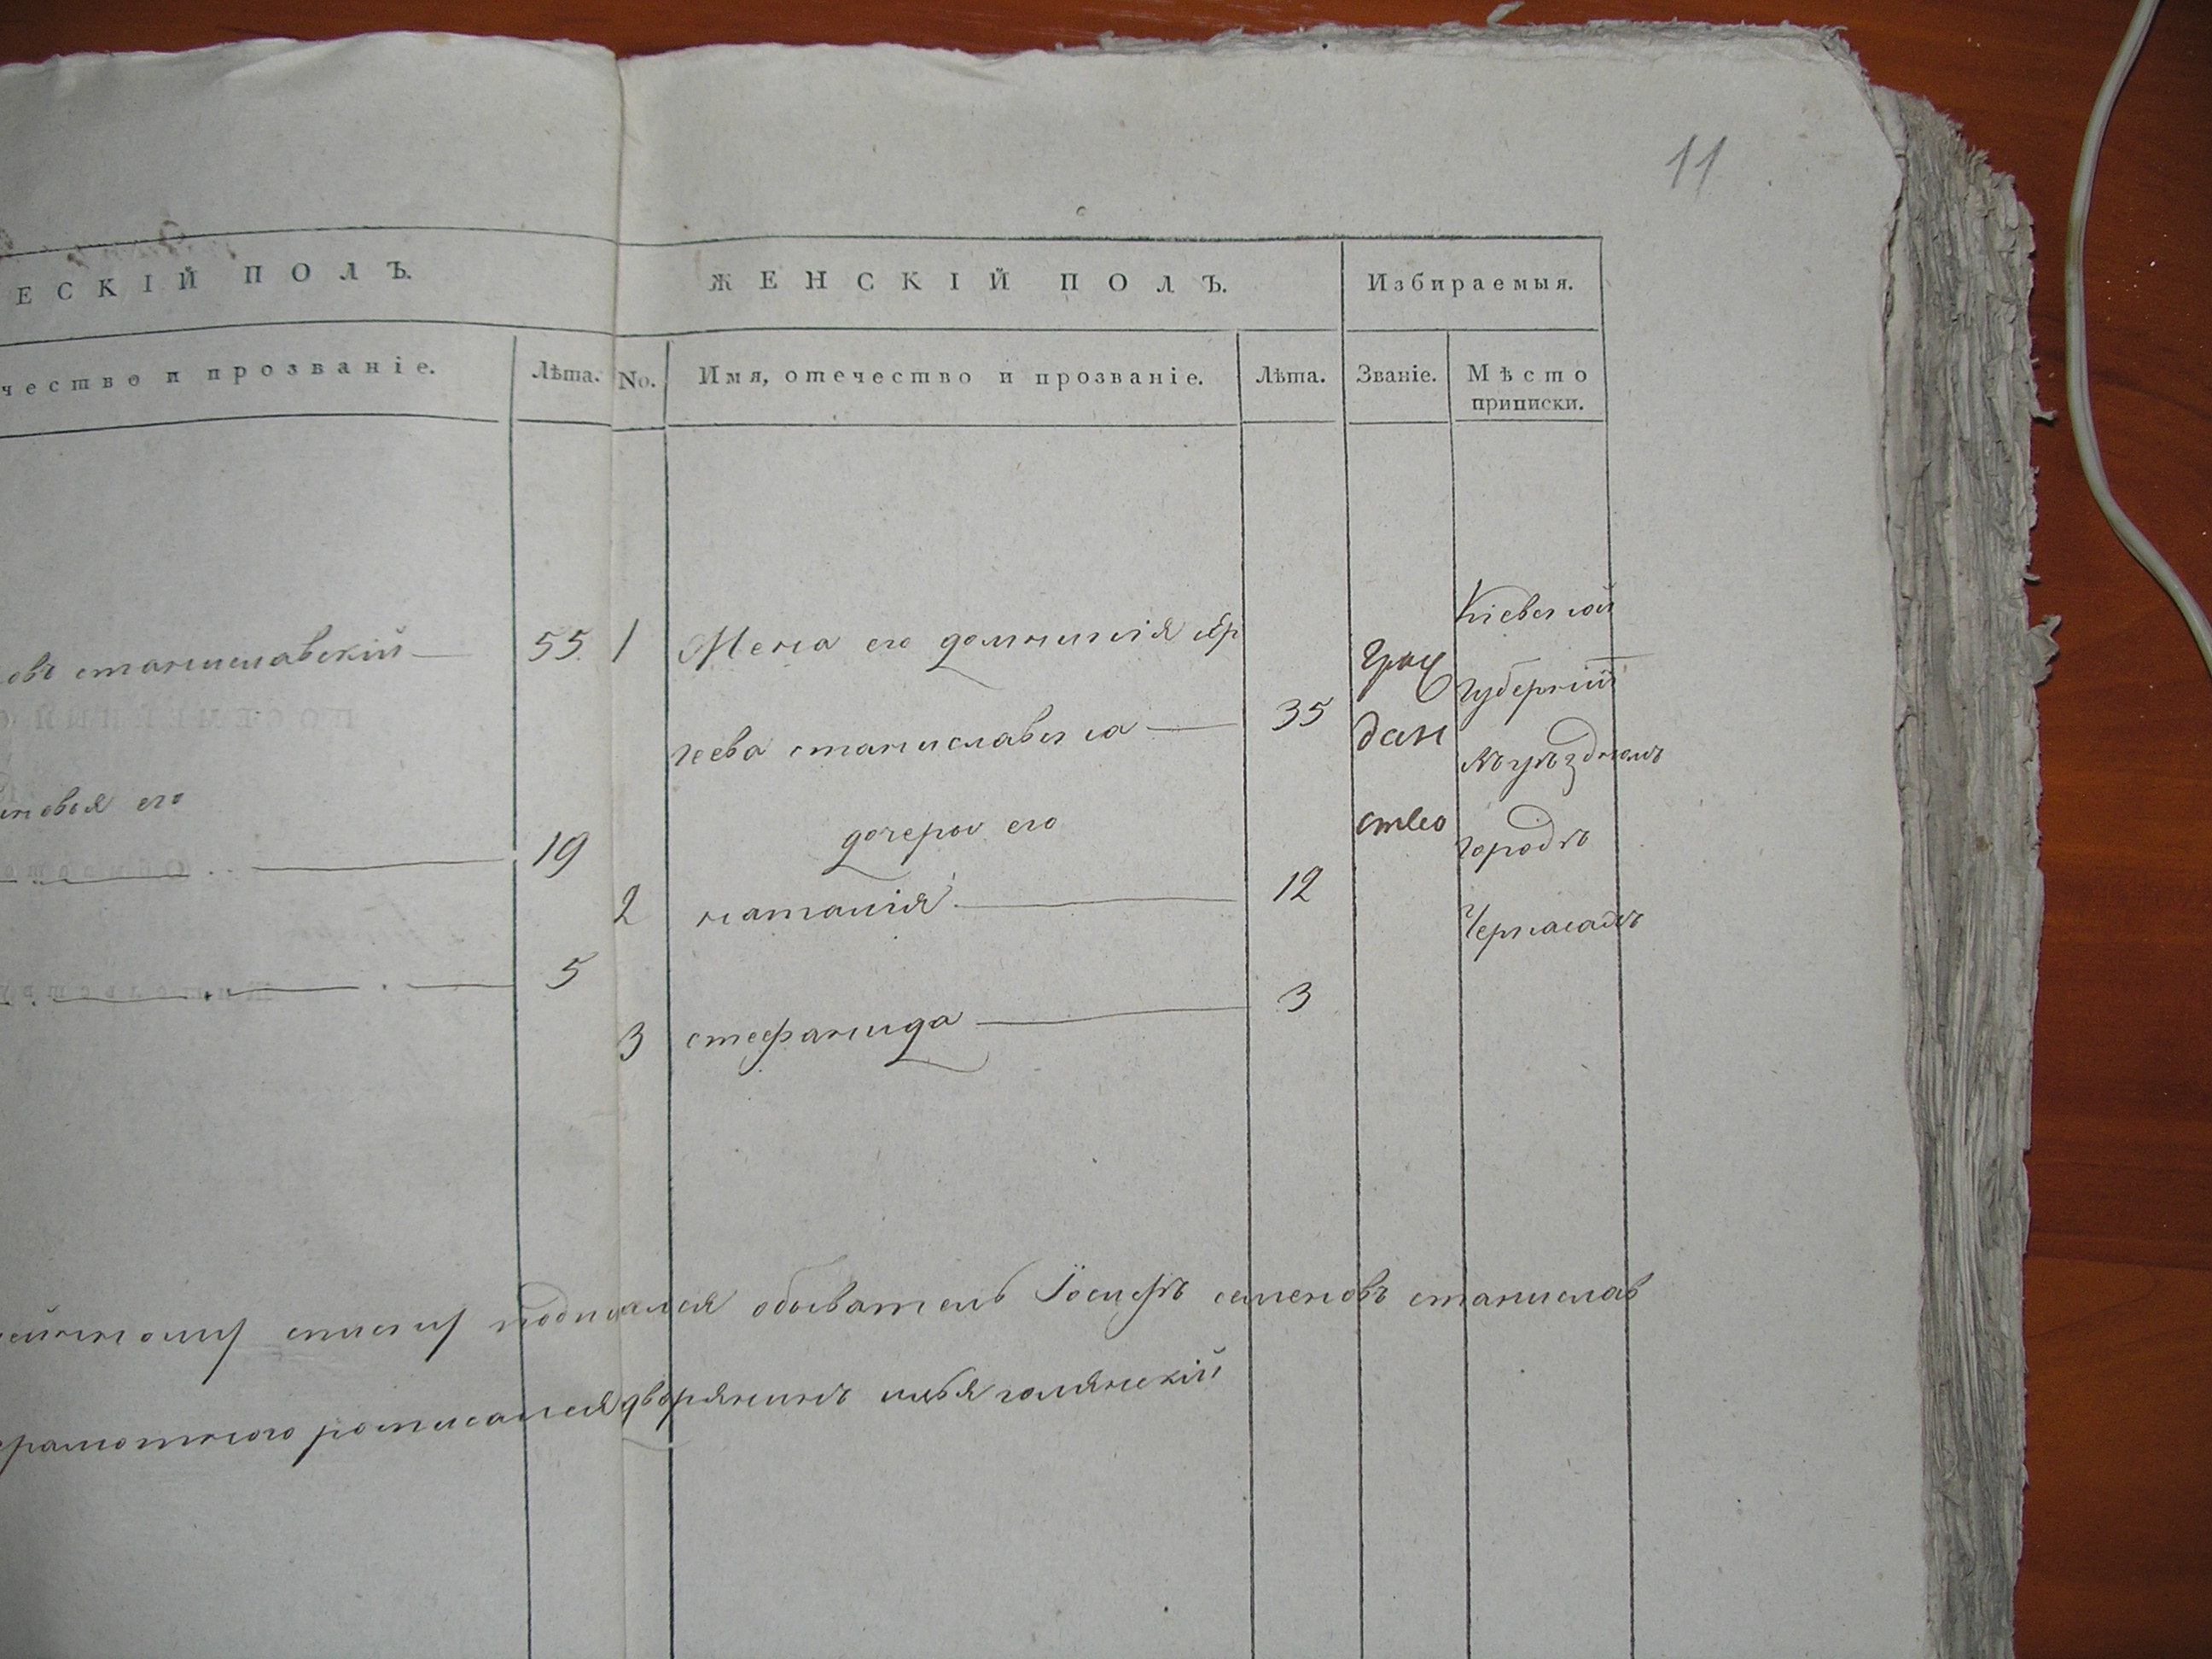 11
ЕСКІЙ ПОЛЪ.
ЖЕНСКІЙ ПОЛЪ.
Избираемыя.
чество и прозваніе.
Лѣта.
No.
Имя, отечество и прозваніе.
Лѣта.
Званіе.
Мѣсто
приписки.
овъ станиславскій
55
1
Жена его домникія
геева станиславска
35
Граж
дан
ство
Кіевской
Губерніи
въ уѣздномъ
городѣ
Черкасахъ
новья его
19
дочери его
2
наталія
12
5
3
стефанида
3
ейному списку подписался обыватель Іосифъ семеновъ станислав
грамотного росписался дворянинъ илья голянскій